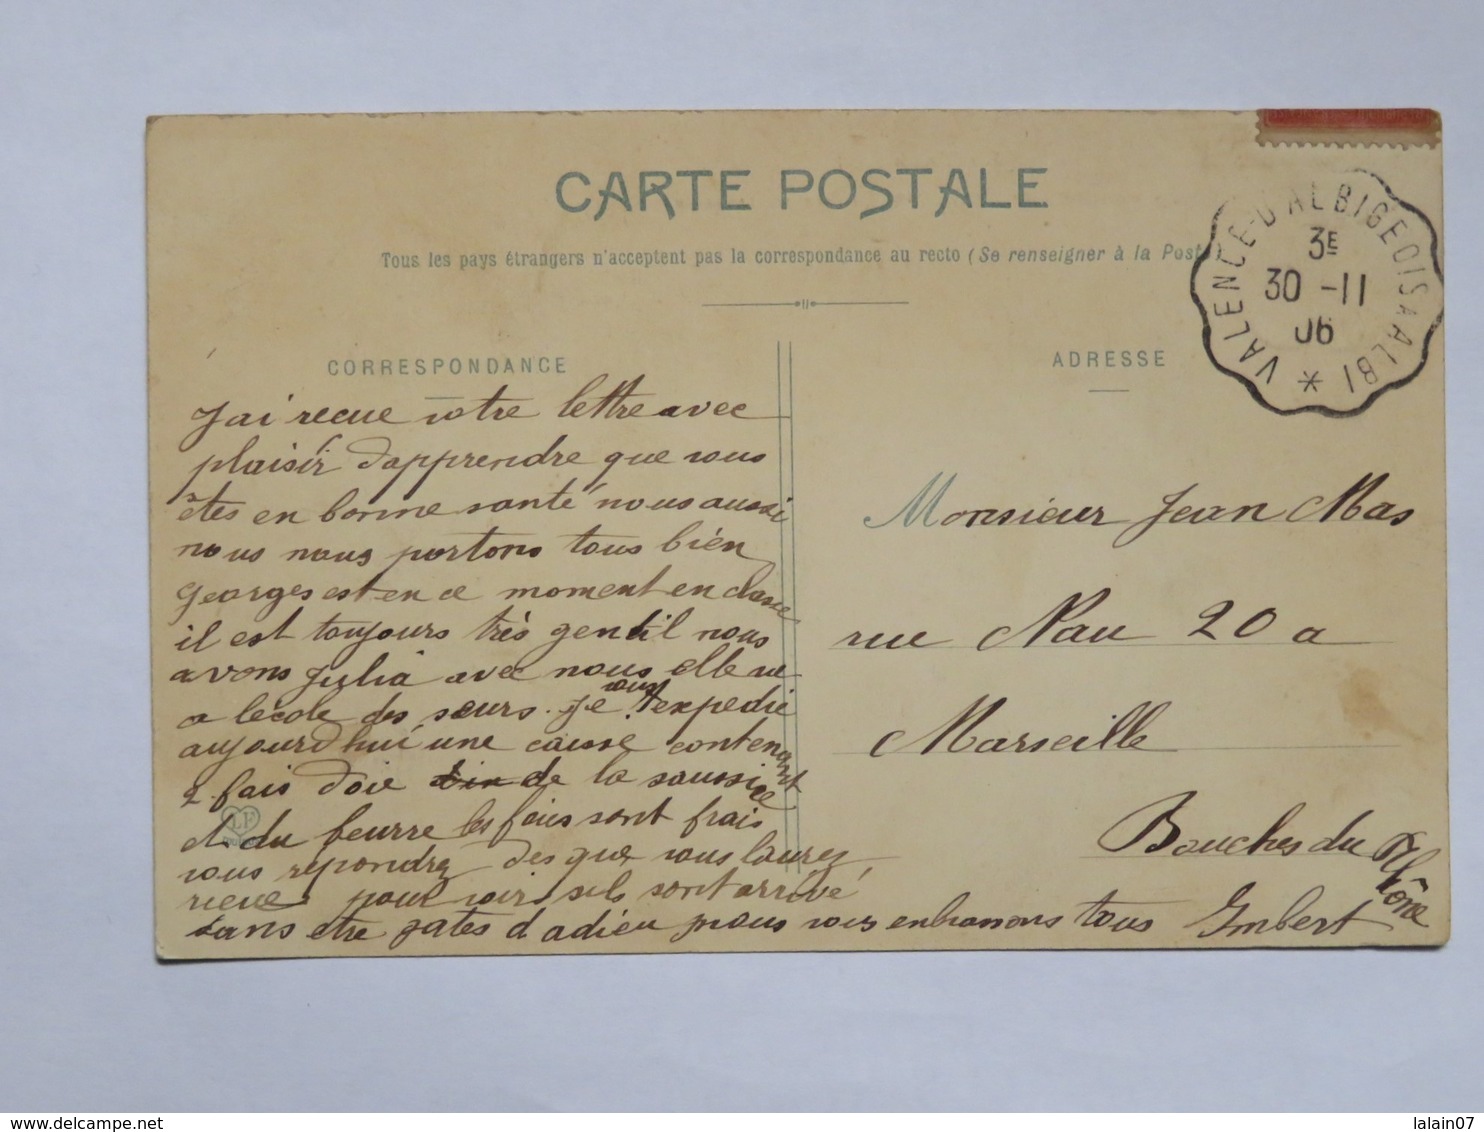 CARTE POSTALE
Tous les pays étrangers n'acceptent pas la correspondance au recto (Se renseigner à la Post
VALENCE-D'ALBIGEOIS A ALBI *
3E
30 -11
06
CORRESPONDANCE
J'ai recue votre lettre avec
plaisir d'apprendre que vous
êtes en bonne santé nous aussi
nous nous portons tous bien
Georges est en ce moment en classe
il est toujours très gentil nous
avons Julia avec nous elle va
a lecole des sœurs. Je vous expedie
aujourd'hui une caisse contenant
2 fais d'oie de la saussice
et du beurre les fois sont frais
vous repondrez des que vous laurez
recue pour voir sils sont arrivé
sans etre gates d adieu nous vous enbrassons tous Imbert
LF
ADRESSE
Monsieur Jean Mas
rue Nau 20 a
Marseille
Bouches du Rhône
delcampe.net
lalain07